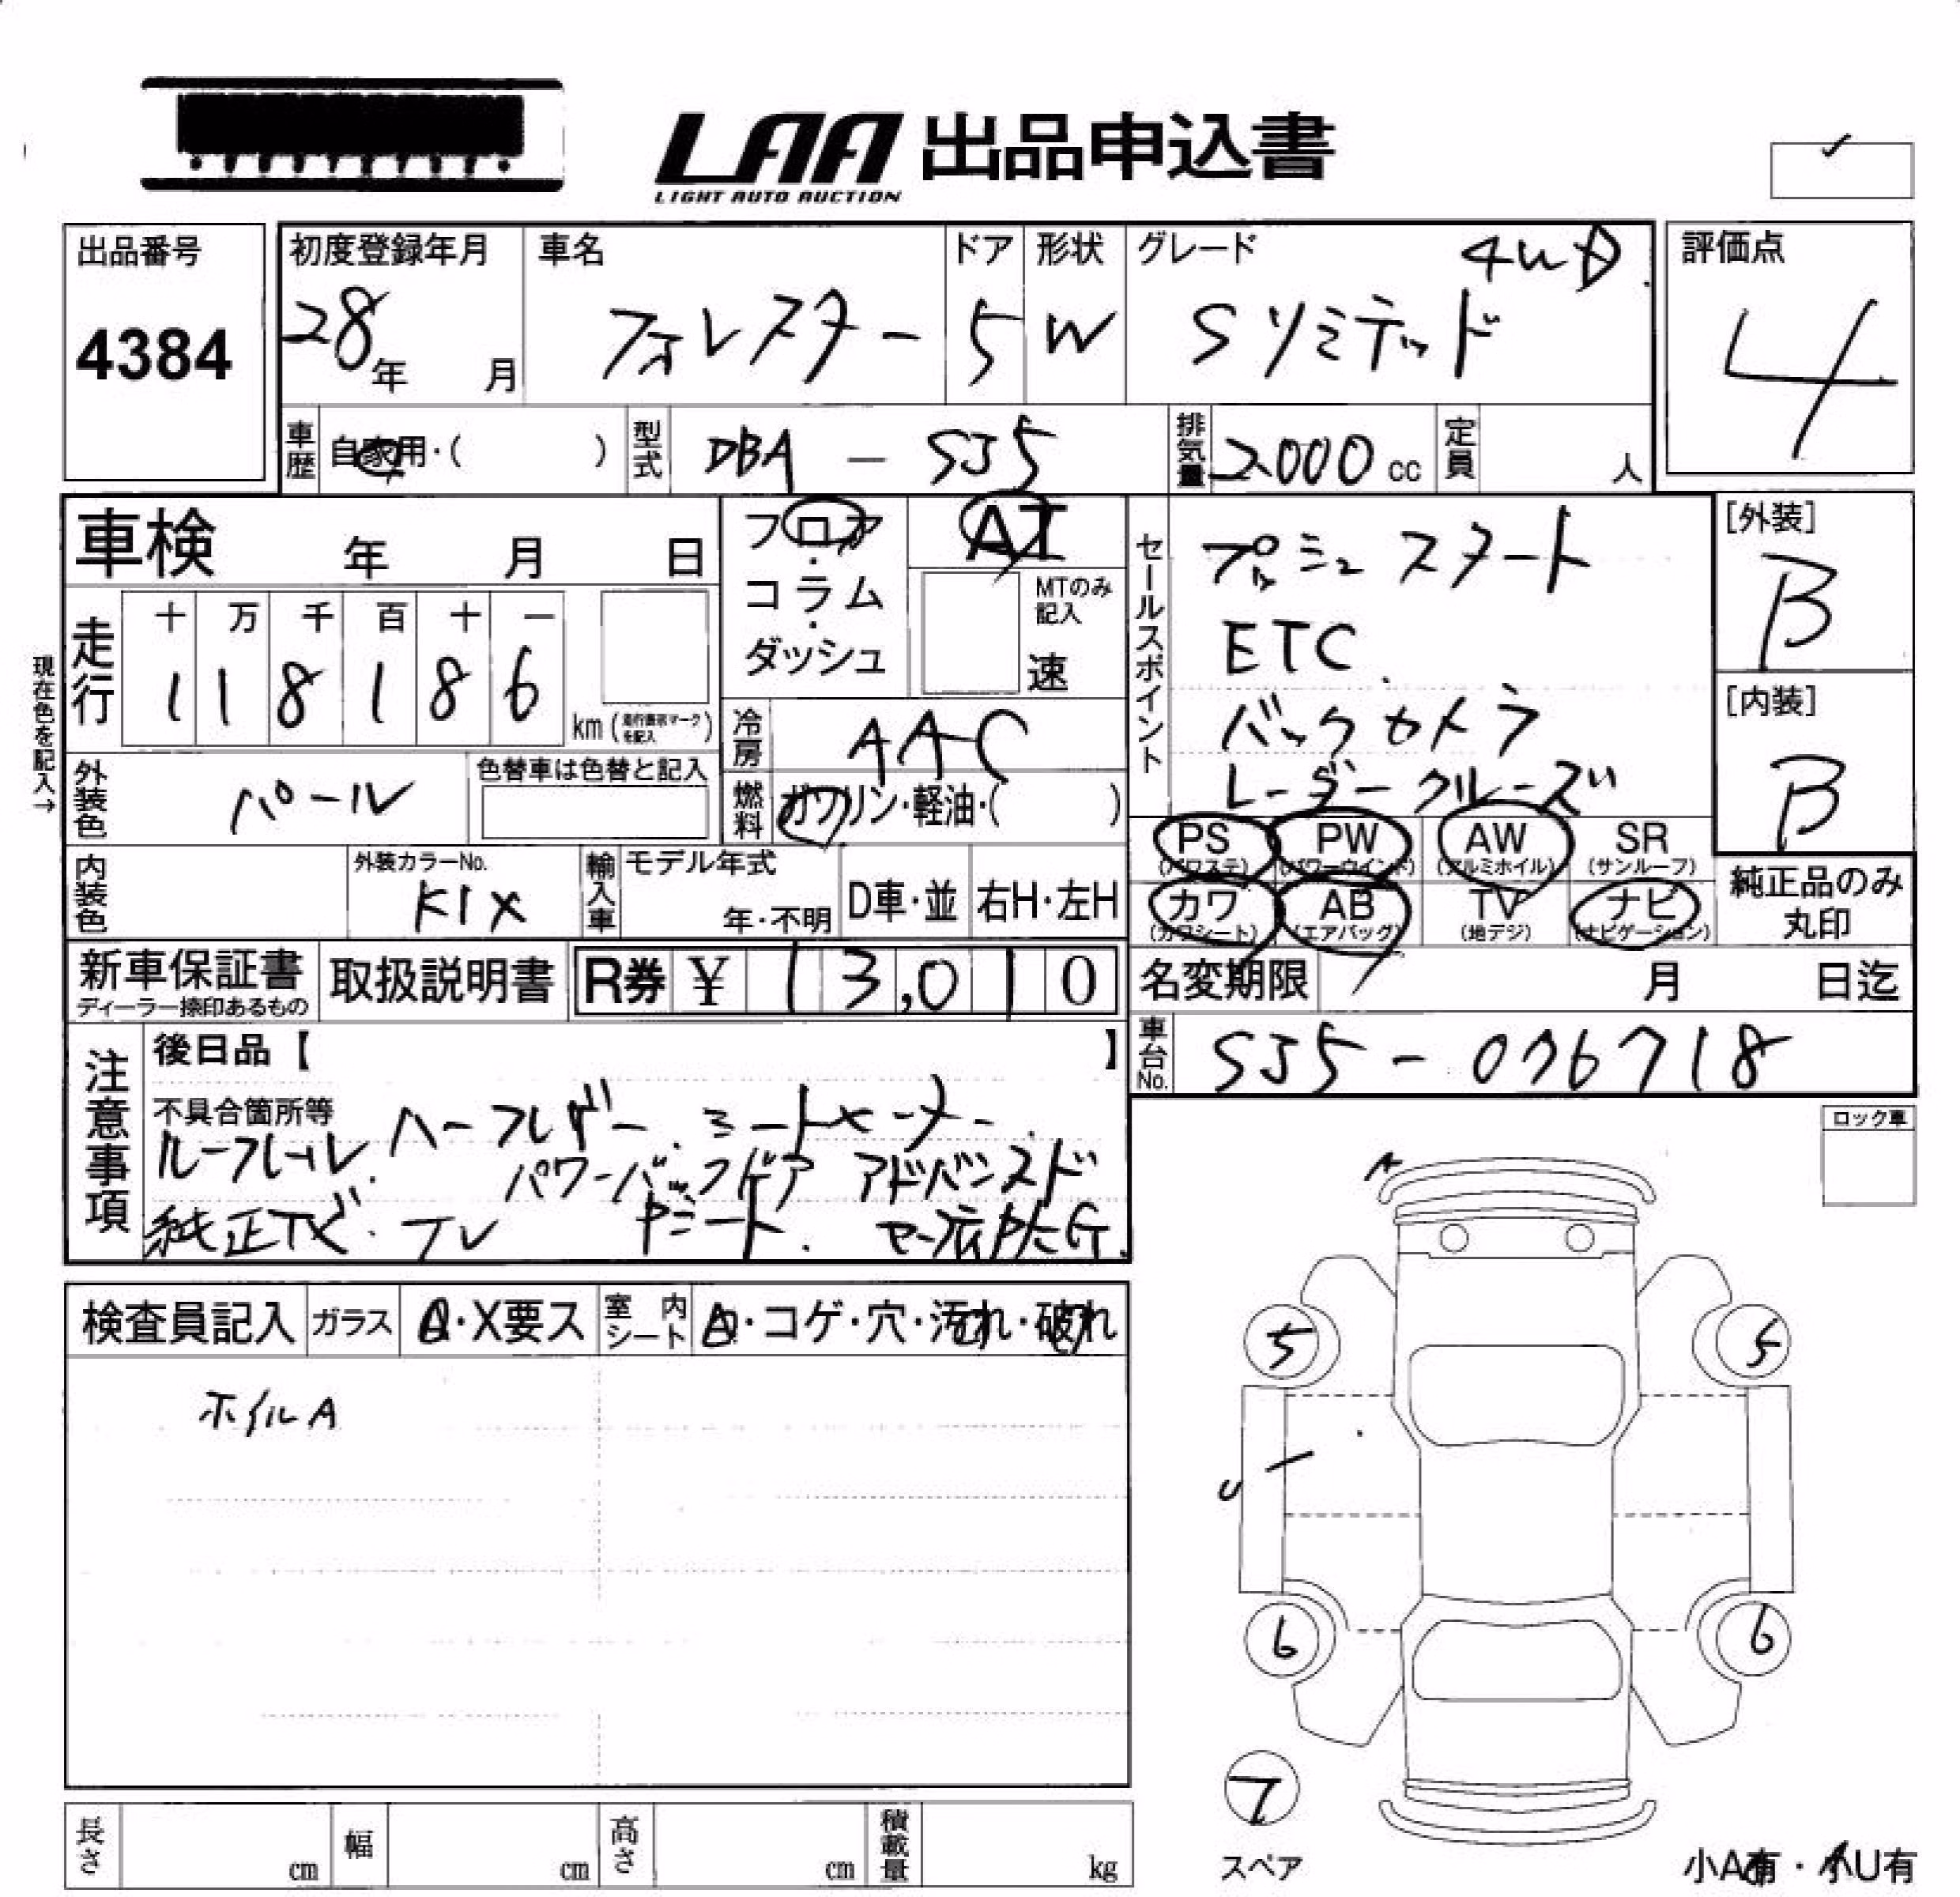 LAA 出品申込書
LIGHT AUTO AUCTION
出品番号
4384
初度登録年月
28年 月
車名
フォレスター
ドア
5
形状
W
グレード 4WD
Sリミテッド
評価点
4
車歴 自家用・( )
型式 DBA - SJ5
排気量 2000 cc
定員 人
車検 年 月 日
フロア・コラム・ダッシュ
AT
MTのみ記入
速
セールスポイント
プッシュスタート
ETC
バックカメラ
レーダークルーズ
[外装]
B
[内装]
B
現在色を記入→
走行
十 万 千 百 十 一
1 1 8 1 8 6
km (走行表示マークを記入)
冷房 AAC
燃料 ガソリン・軽油・( )
外装色 パール
色替車は色替と記入
内装色
外装カラーNo.
K1X
輸入車
モデル年式
年・不明
D車・並
右H・左H
PS (パワステ)
PW (パワーウインド)
AW (アルミホイル)
SR (サンルーフ)
カワ (カワシート)
AB (エアバッグ)
TV (地デジ)
ナビ (ナビゲーション)
純正品のみ丸印
新車保証書
ディーラー捺印あるもの
取扱説明書
R券 ¥ 13,010
名変期限 月 日迄
車台No. SJ5 - 076718
注意事項
後日品【 】
不具合箇所等
ハーフレザー. シートヒーター.
ルーフレール. パワーバックドア アドバンスド
純正ナビ・TV Pシート. セーフティPKG.
ロック車
検査員記入
ガラス A・X要ス
室内シート A・コゲ・穴・汚れ・破れ
ホイルA
A
5 5
U
6 6
7
スペア
小A有・小U有
長さ cm
幅 cm
高さ cm
積載量 kg